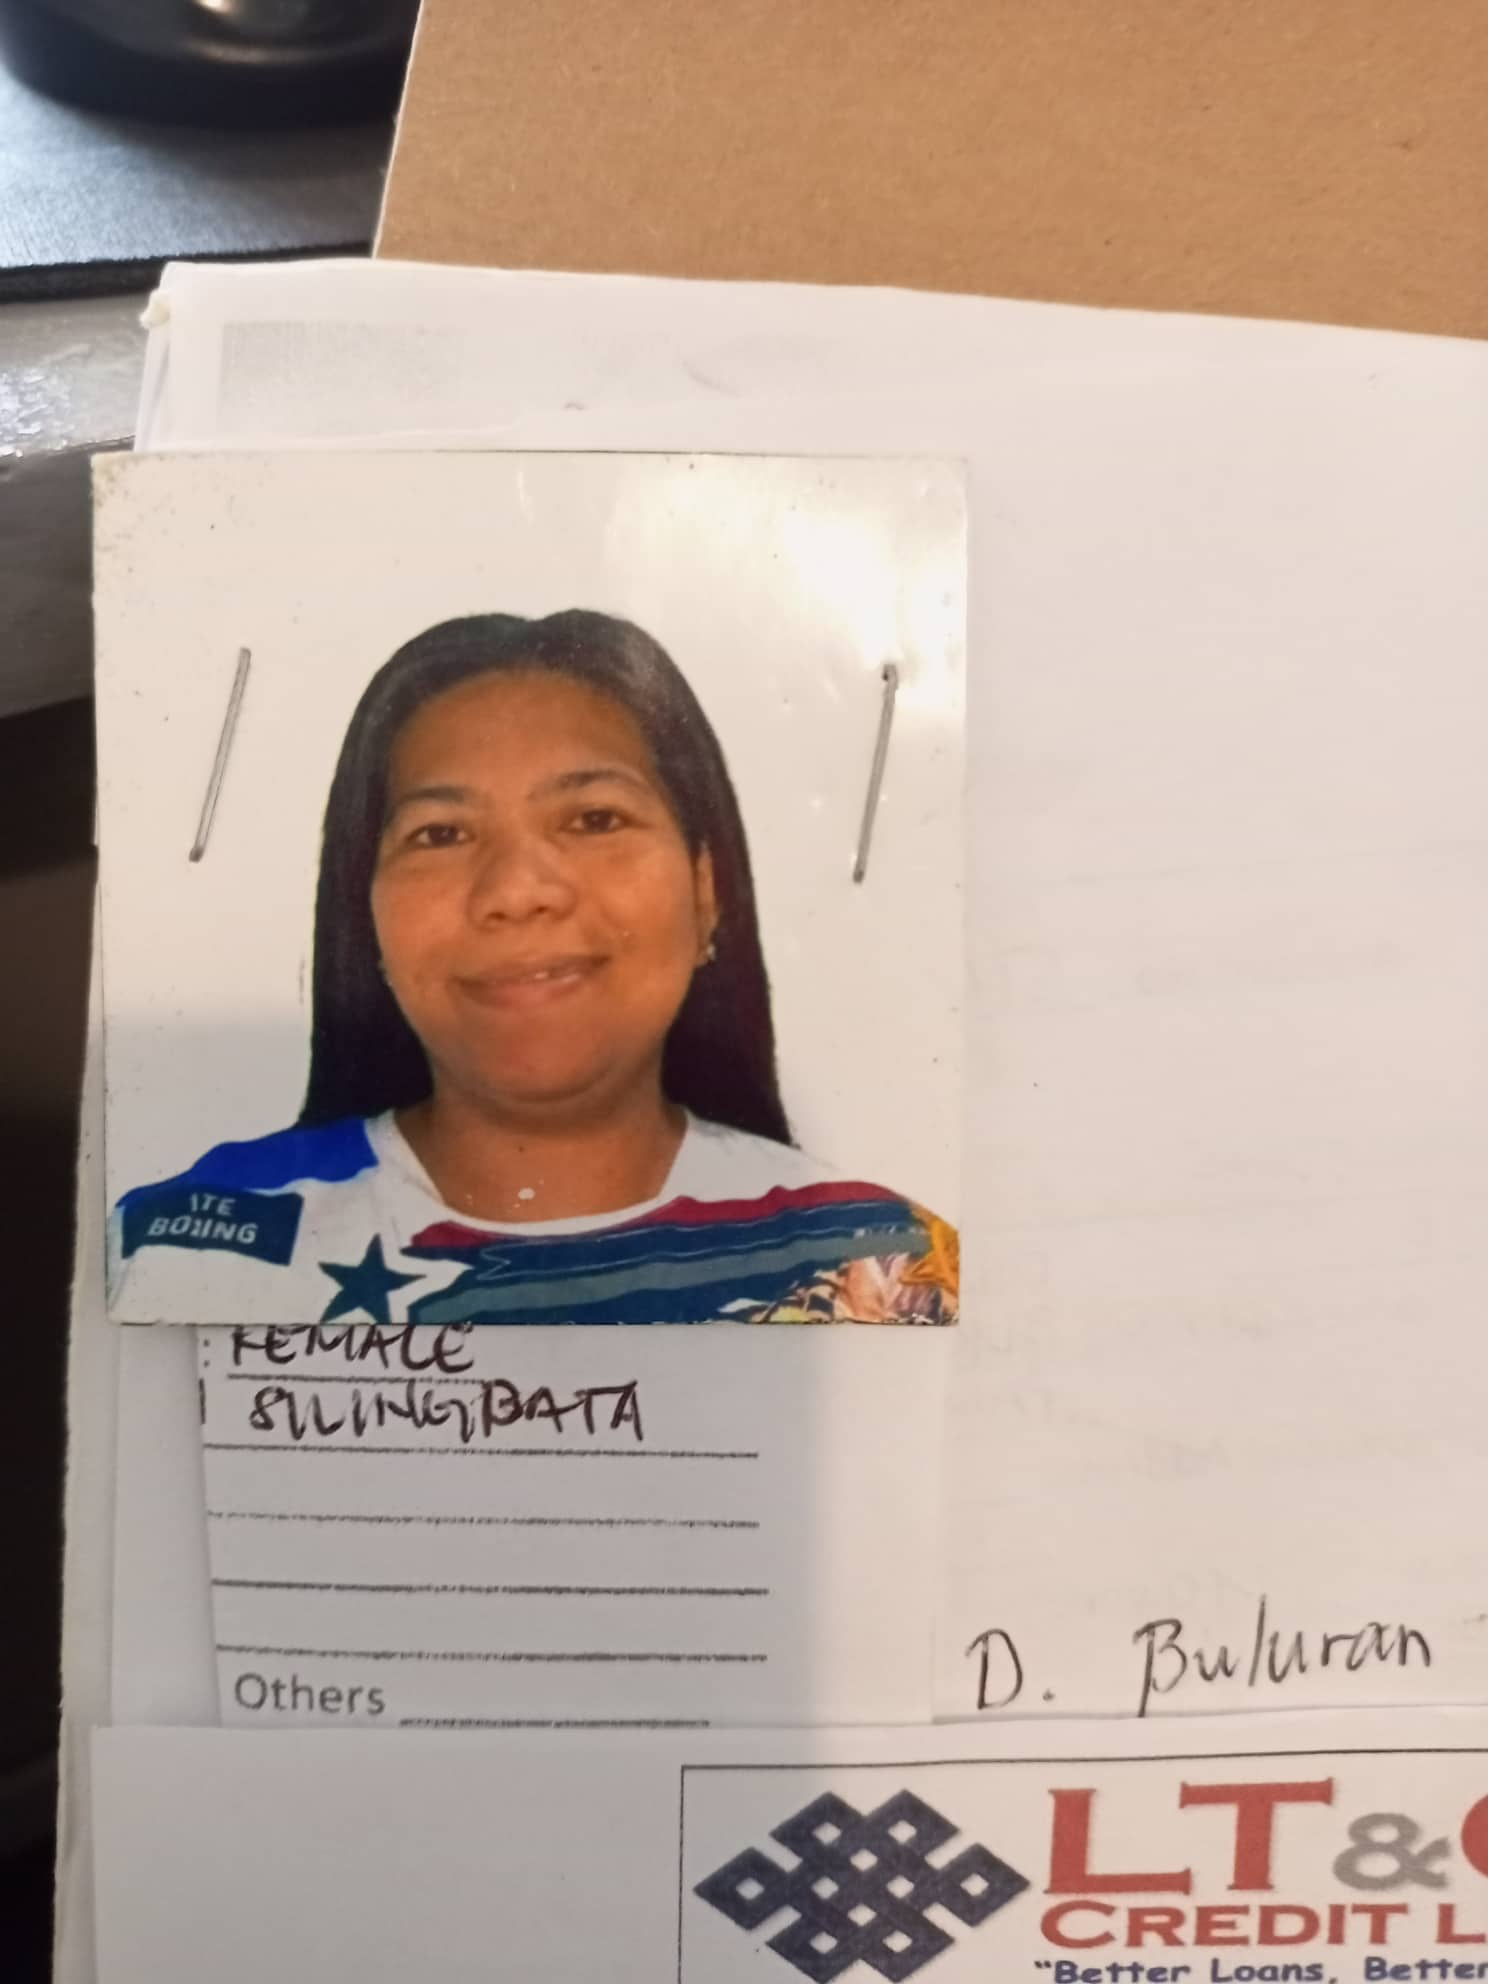 ITE
BOXING
: FEMALE
SILINGBATA
Others
D. Buluran
LT&
CREDIT L
"Better Loans, Better